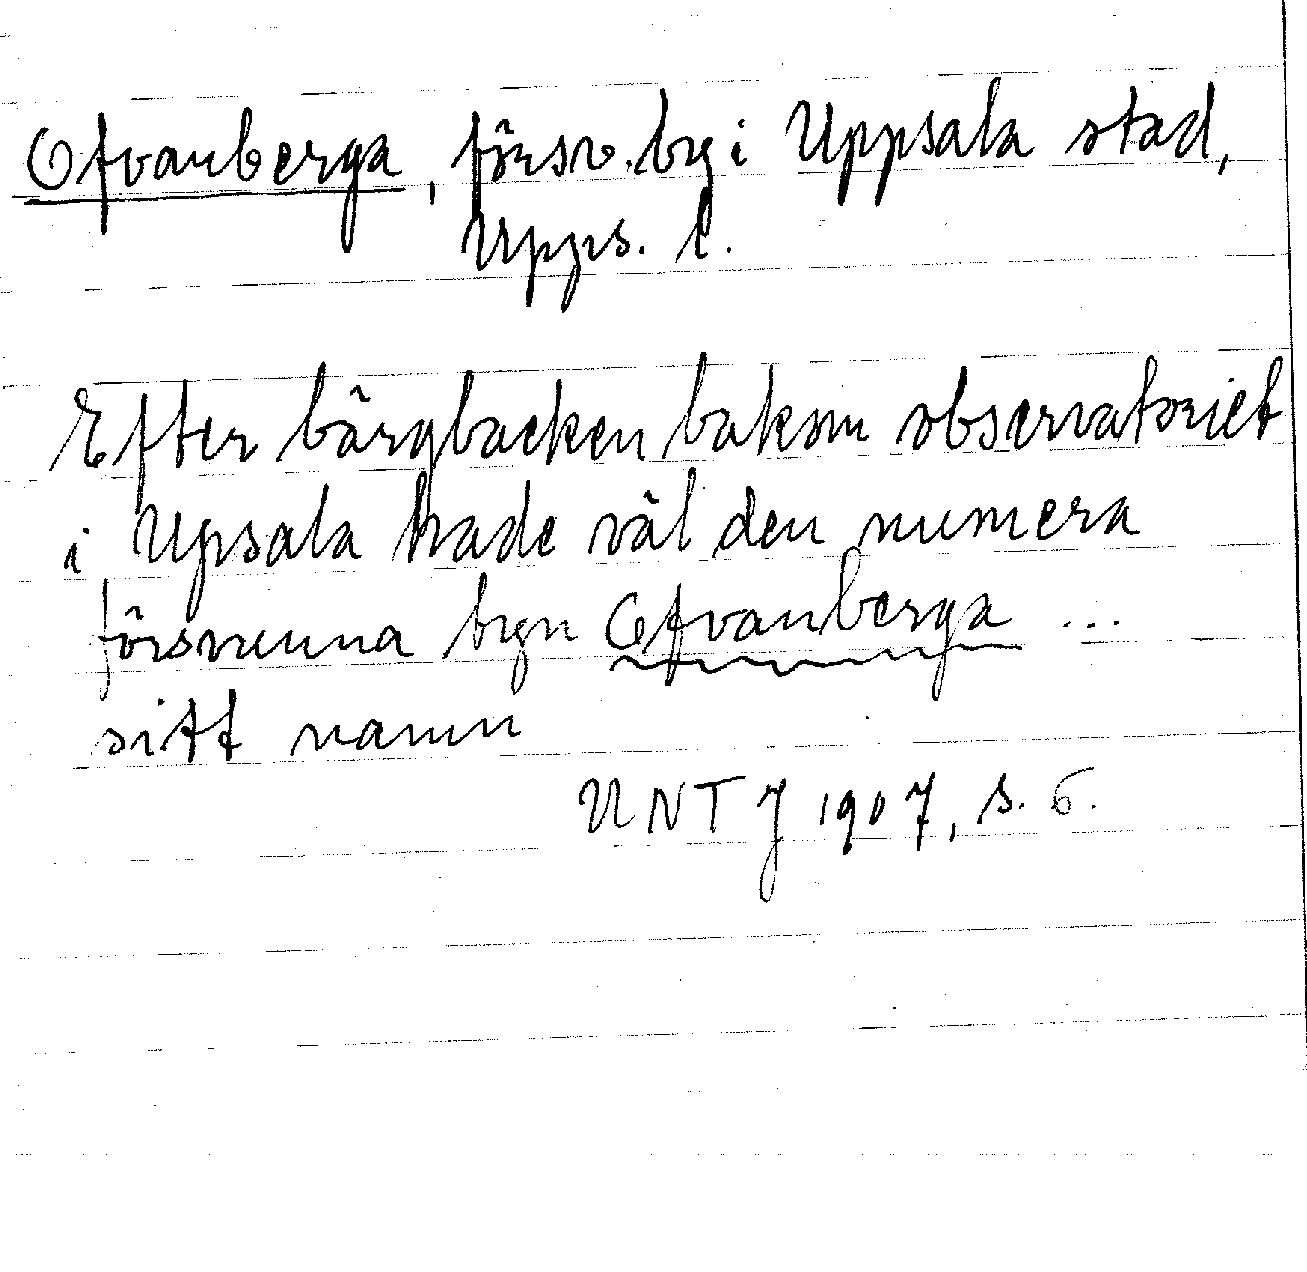 Ofvanberga, försv. by i Uppsala stad,
Upps. l.
Efter bärgbacken bakom observatoriet
i Upsala hade väl den numera
försvunna byn Ofvanberga ...
sitt namn
UNT J 1907, s. 6.